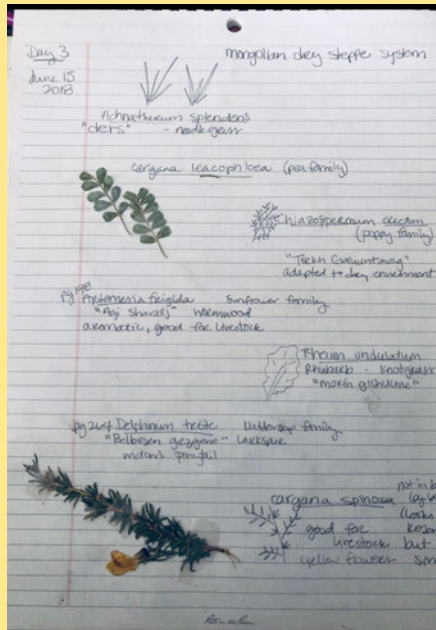 Day 3
June 15
2018
mongolian dry steppe system
Achnatherum splendens
"ders" - needlegrass
cargana leacophloea (pea family)
Chiazospermum erectum
(poppy family)
adapted to dry environment
pg 198
Artemesia frigida sunflower family
"Agi Sharalj" wormwood
aromatic, good for livestock
Rheum undulatum
Rhubarb - knotgrass
pg 264 Delphinum buttercup family
"Belbesen gezgene" Larkspur
ponytail
not in b
cargana spinosa (pg 6
(looks
good for
livestock but
yellow flowers sm